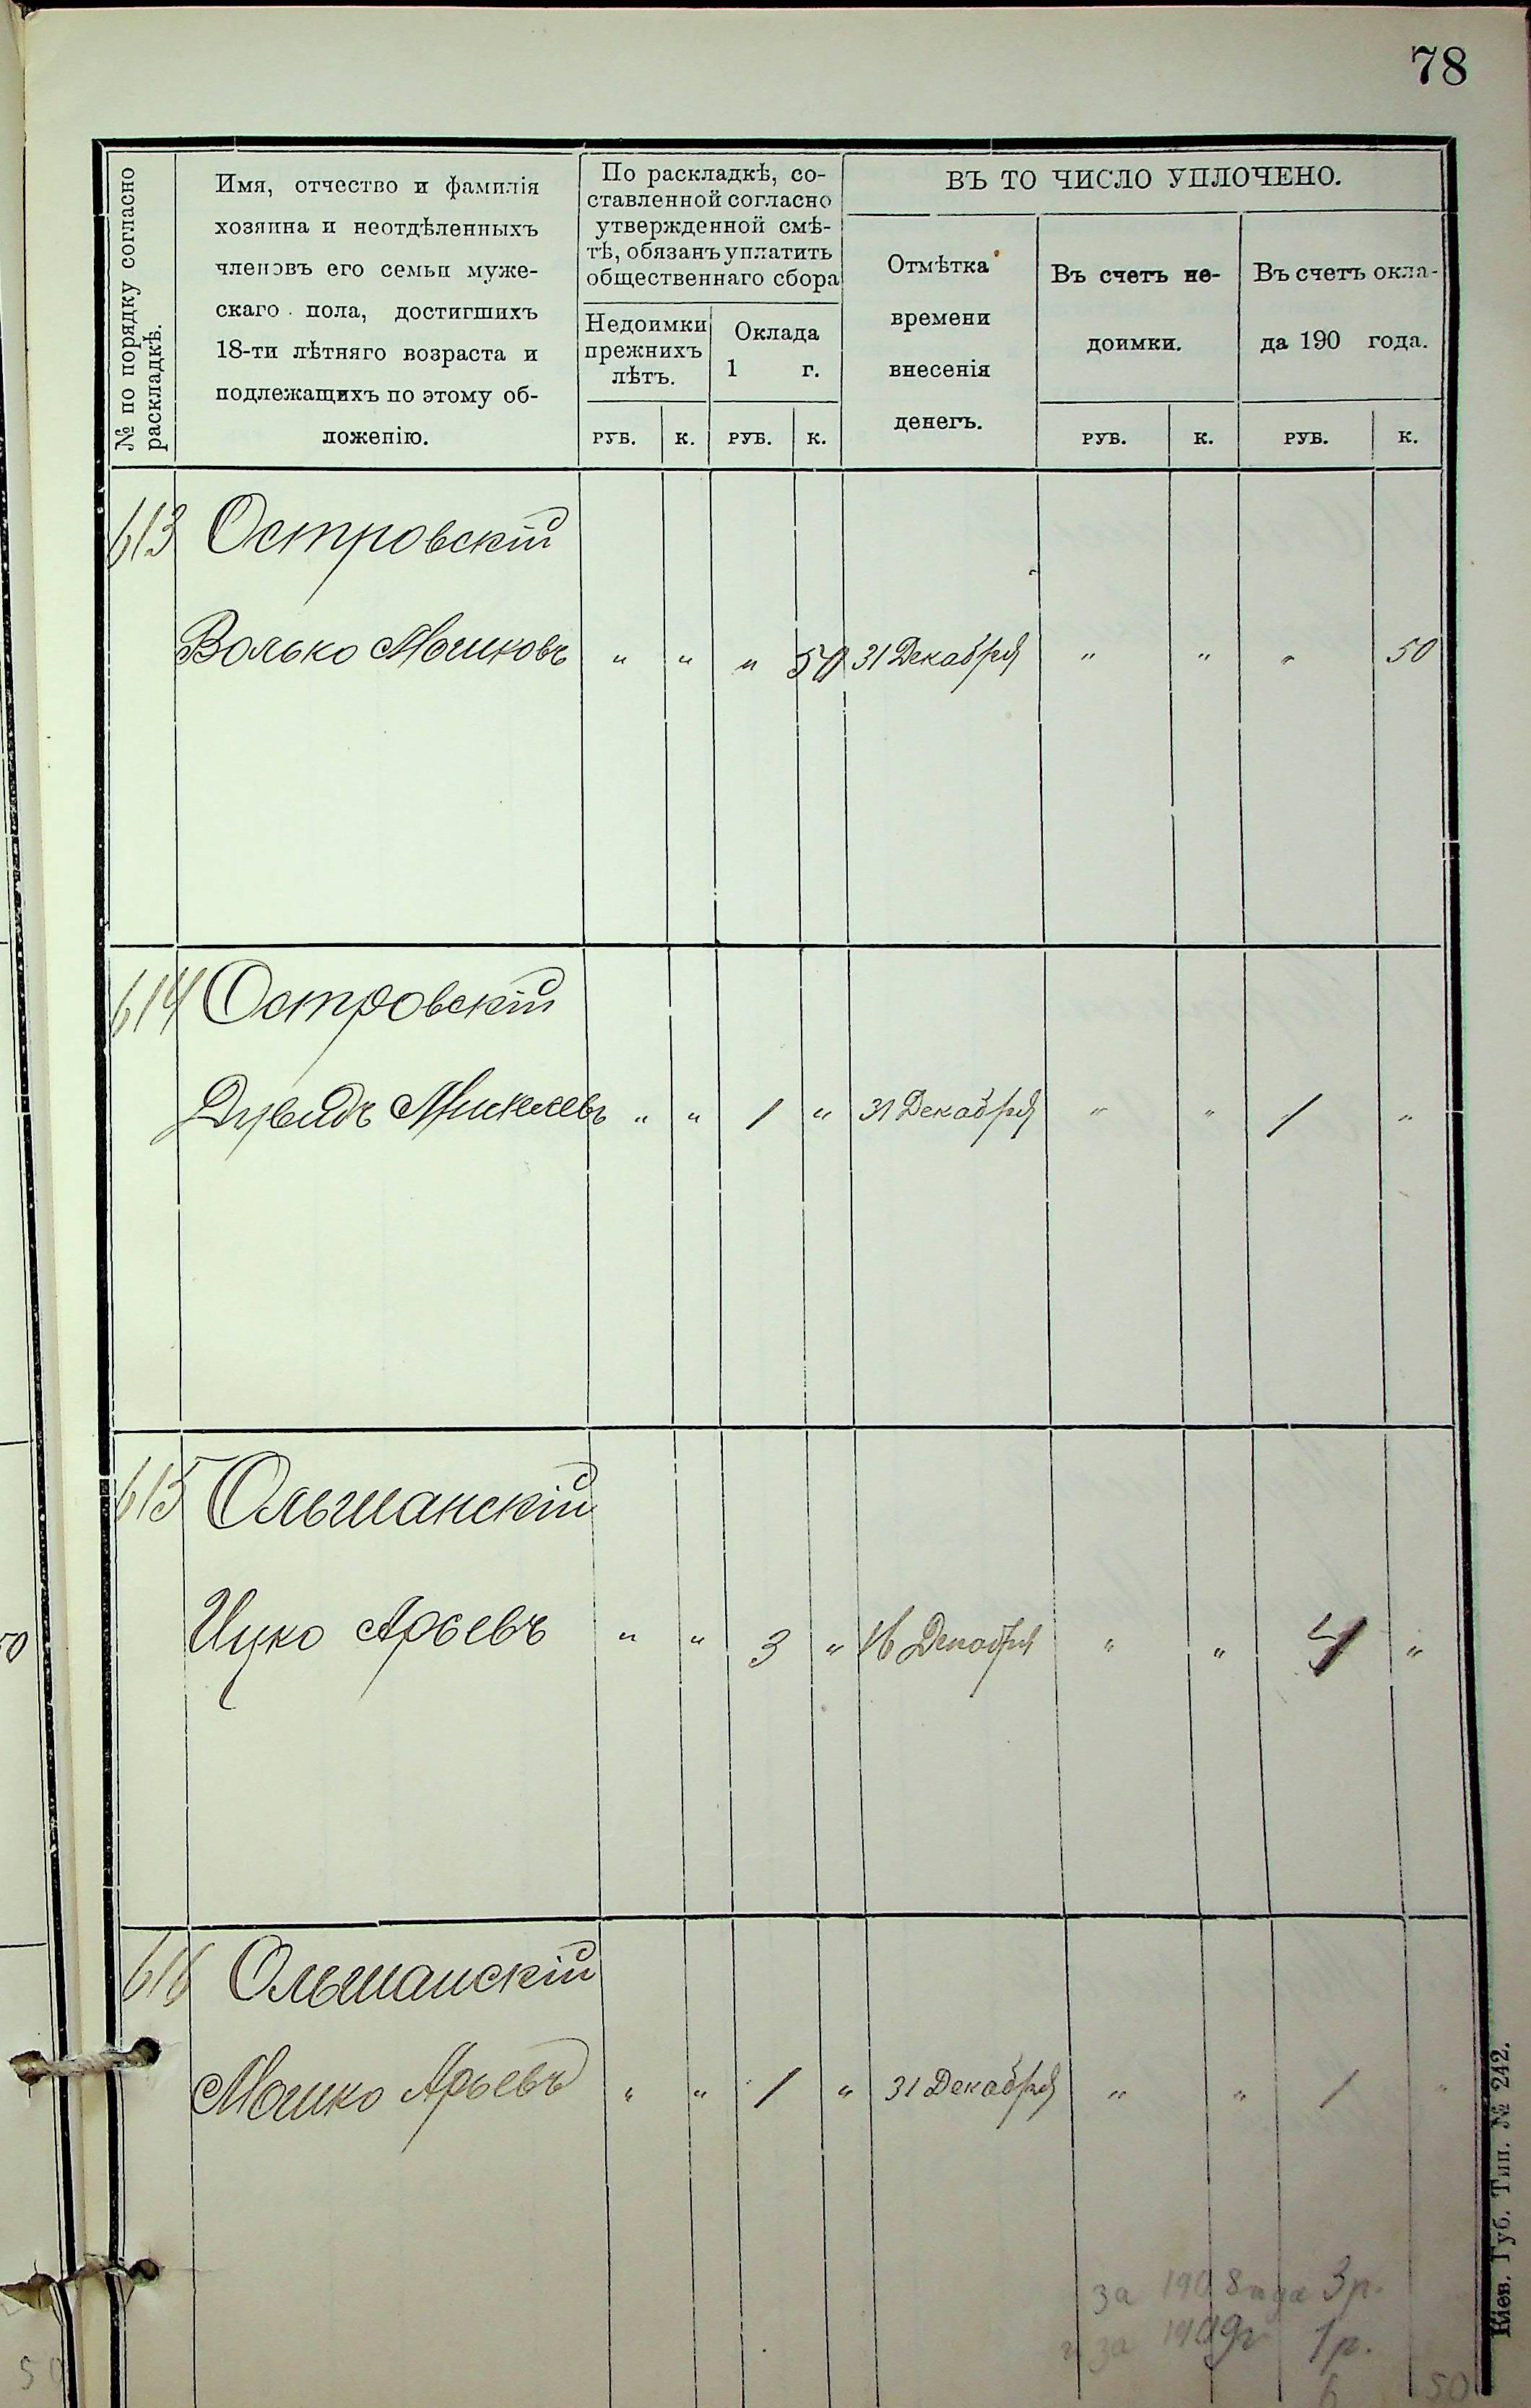 78
№ по порядку согласно
раскладкѣ.
Имя, отчество и фамилія
хозяина и неотдѣленныхъ
членовъ его семьи муже-
скаго пола, достигшихъ
18-ти лѣтняго возраста и
подлежащихъ по этому об-
ложенію.
По раскладкѣ, со-
ставленной согласно
утвержденной смѣ-
тѣ, обязанъ уплатить
общественнаго сбора
Недоимки
прежнихъ
лѣтъ.
Оклада
1 г.
ВЪ ТО ЧИСЛО УПЛОЧЕНО.
Отмѣтка
времени
внесенія
денегъ.
Въ счетъ не-
доимки.
Въ счетъ окла-
да 190 года.
РУБ. К. РУБ. К. РУБ. К. РУБ. К.
613 Островскій
Волько Мошковъ " " " 50 31 Декабря " " " 50
614 Островскій
Дувидъ Микелевъ " " 1 " 31 Декабря " " 1 "
615 Ольшанскій
Ицко Арьевъ " " 3 " 16 Декабря " " "
616 Ольшанскій
Мошко Арьевъ " " 1 " 31 Декабря " " 1 "
за 1908 года 3 р.
и за 1909 г 1 р.
6 50
Кіев. Губ. Тип. № 242.
50
50